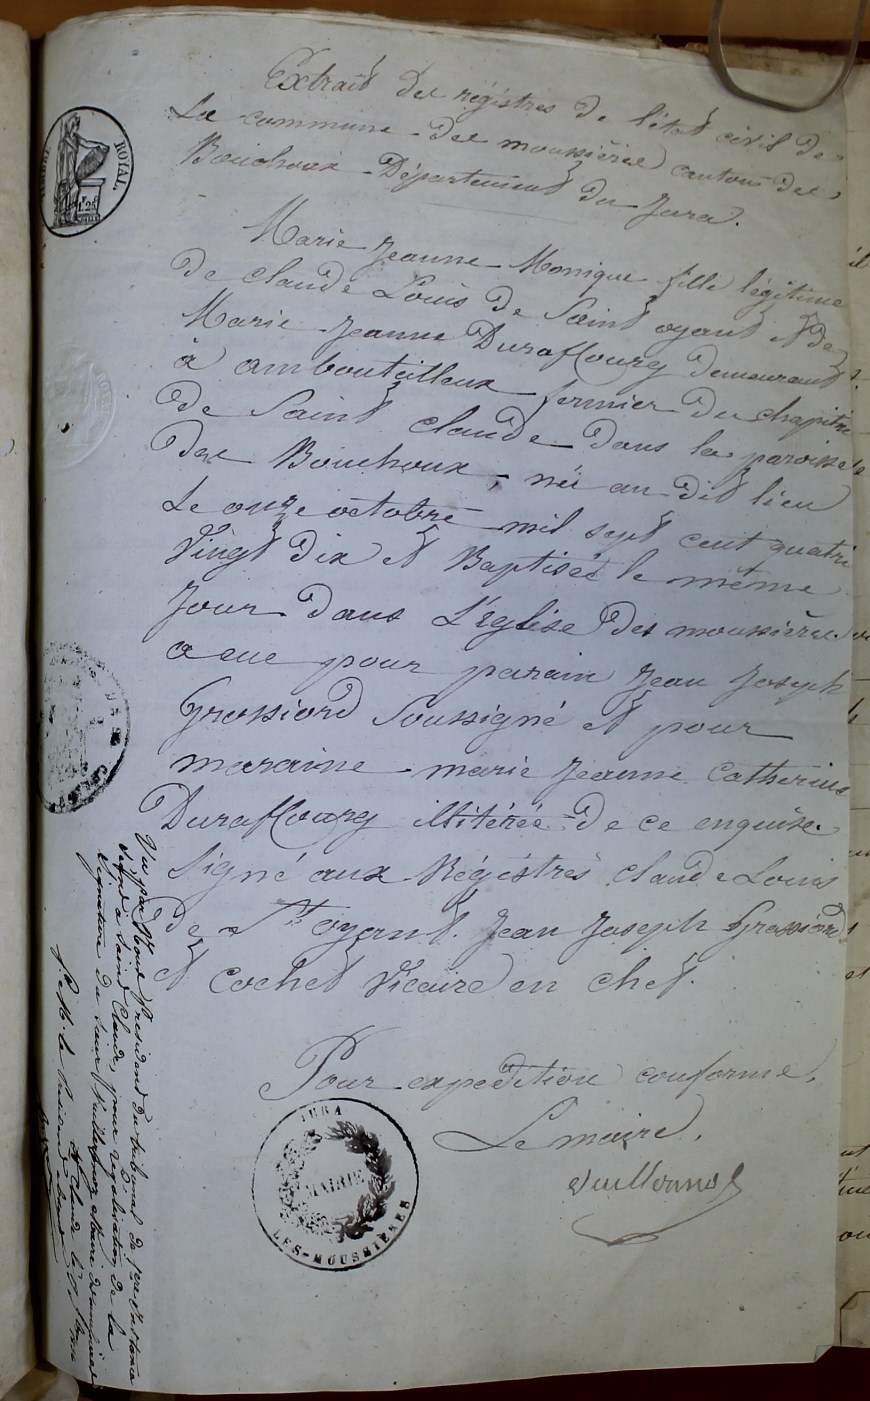 Extrait des régistres de l'état civil de
La commune des moussières canton des
Bouchoux Département du Jura.
Marie Jeanne Monique fille légitime
de Claude Louis de Saint oyant et de
Marie Jeanne Duraffourg demeurant
à ambouteilleux fermier du chapitre
de Saint Claude dans la paroisse
des Bouchoux, née au dit lieu
Le onze octobre mil sept cent quatre
Vingt dix et Baptisée le même
Jour dans L'église des moussières
a eue pour parain Jean Joseph
Grossiord Soussigné et pour
maraine marie Jeanne Catherine
Duraffourg illitérée de ce enquise.
Signé aux Régistres Claude Louis
de St oyant. Jean Joseph Grossiord
et Cochet Vicaire en chef.
Pour expédition conforme,
Le maire,
Vuillermoz
TIMBRE ROYAL
JURA
MAIRIE
LES-MOUSSIÈRES
Vu par Nous Président du tribunal de 1ère Instance
séant à Saint Claude, pour légalisation de la
signature du Sieur Vuillermoz Maire des moussières
St Claude le